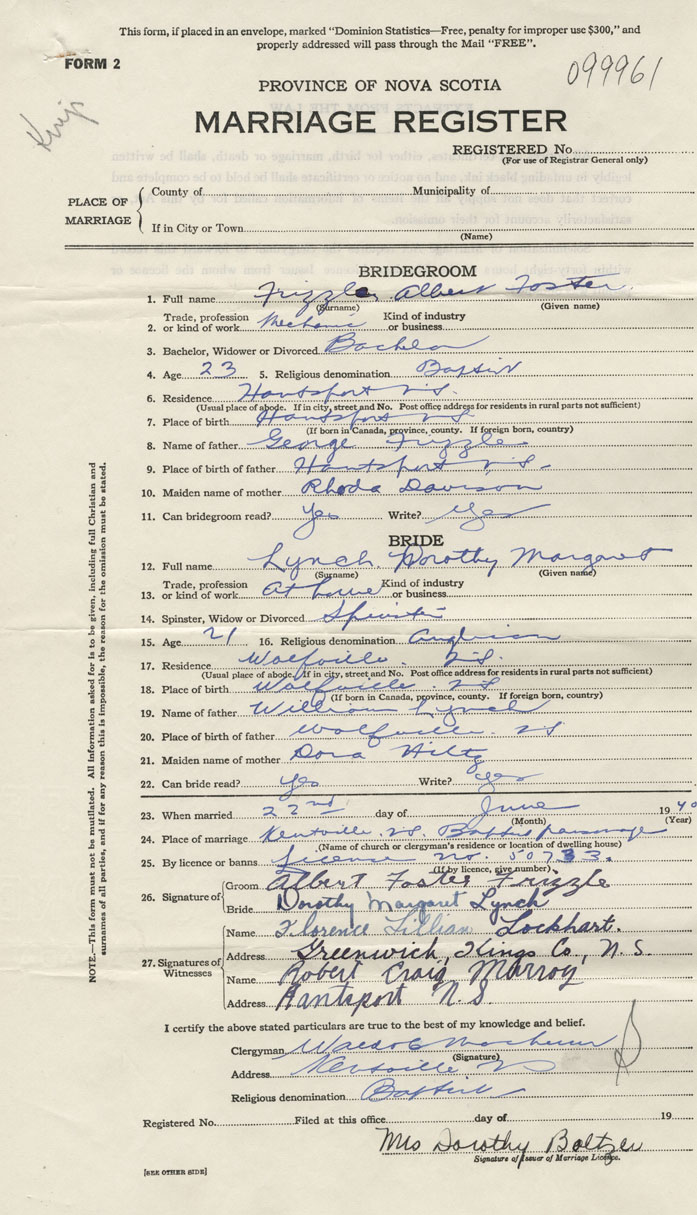 This form, if placed in an envelope, marked "Dominion Statistics—Free, penalty for improper use $300," and
properly addressed will pass through the Mail "FREE".
FORM 2
099961
PROVINCE OF NOVA SCOTIA
MARRIAGE REGISTER
REGISTERED No.
(For use of Registrar General only)
PLACE OF MARRIAGE
County of Municipality of
If in City or Town
(Name)
BRIDEGROOM
1. Full name Frizzle Albert Foster
(Surname) (Given name)
2. Trade, profession or kind of work Mechanic Kind of industry or business
3. Bachelor, Widower or Divorced Bachelor
4. Age 23 5. Religious denomination Baptist
6. Residence Hantsport N.S.
(Usual place of abode. If in city, street and No. Post office address for residents in rural parts not sufficient)
7. Place of birth Hantsport N.S.
(If born in Canada, province, county. If foreign born, country)
8. Name of father George Frizzle
9. Place of birth of father Hantsport N.S.
10. Maiden name of mother Rhoda Davison
11. Can bridegroom read? Yes Write? Yes
BRIDE
12. Full name Lynch Dorothy Margaret
(Surname) (Given name)
13. Trade, profession or kind of work At home Kind of industry or business
14. Spinster, Widow or Divorced Spinster
15. Age 21 16. Religious denomination Anglican
17. Residence Wolfville N.S.
(Usual place of abode. If in city, street and No. Post office address for residents in rural parts not sufficient)
18. Place of birth Wolfville N.S.
(If born in Canada, province, county. If foreign born, country)
19. Name of father William Lynch
20. Place of birth of father Wolfville N.S.
21. Maiden name of mother Dora Hiltz
22. Can bride read? Yes Write? Yes
23. When married 22nd day of June 1940
(Month) (Year)
24. Place of marriage Kentville N.S. Baptist parsonage
(Name of church or clergyman's residence or location of dwelling house)
25. By licence or banns License No. 50733.
(If by licence, give number)
26. Signature of
Groom Albert Foster Frizzle
Bride Dorothy Margaret Lynch
27. Signatures of Witnesses
Name Florence Lillian Lockhart.
Address Greenwich, Kings Co, N.S.
Name Robert Craig Murray
Address Hantsport N.S.
I certify the above stated particulars are true to the best of my knowledge and belief.
Clergyman
(Signature)
Address Kentville NS
Religious denomination Baptist
Registered No. Filed at this office day of 19
Mrs Dorothy Boltzer
Signature of Issuer of Marriage License.
[SEE OTHER SIDE]
NOTE.—This form must not be mutilated. All information asked for is to be given, including full Christian and
surnames of all parties, and if for any reason this is impossible, the reason for the omission must be stated.